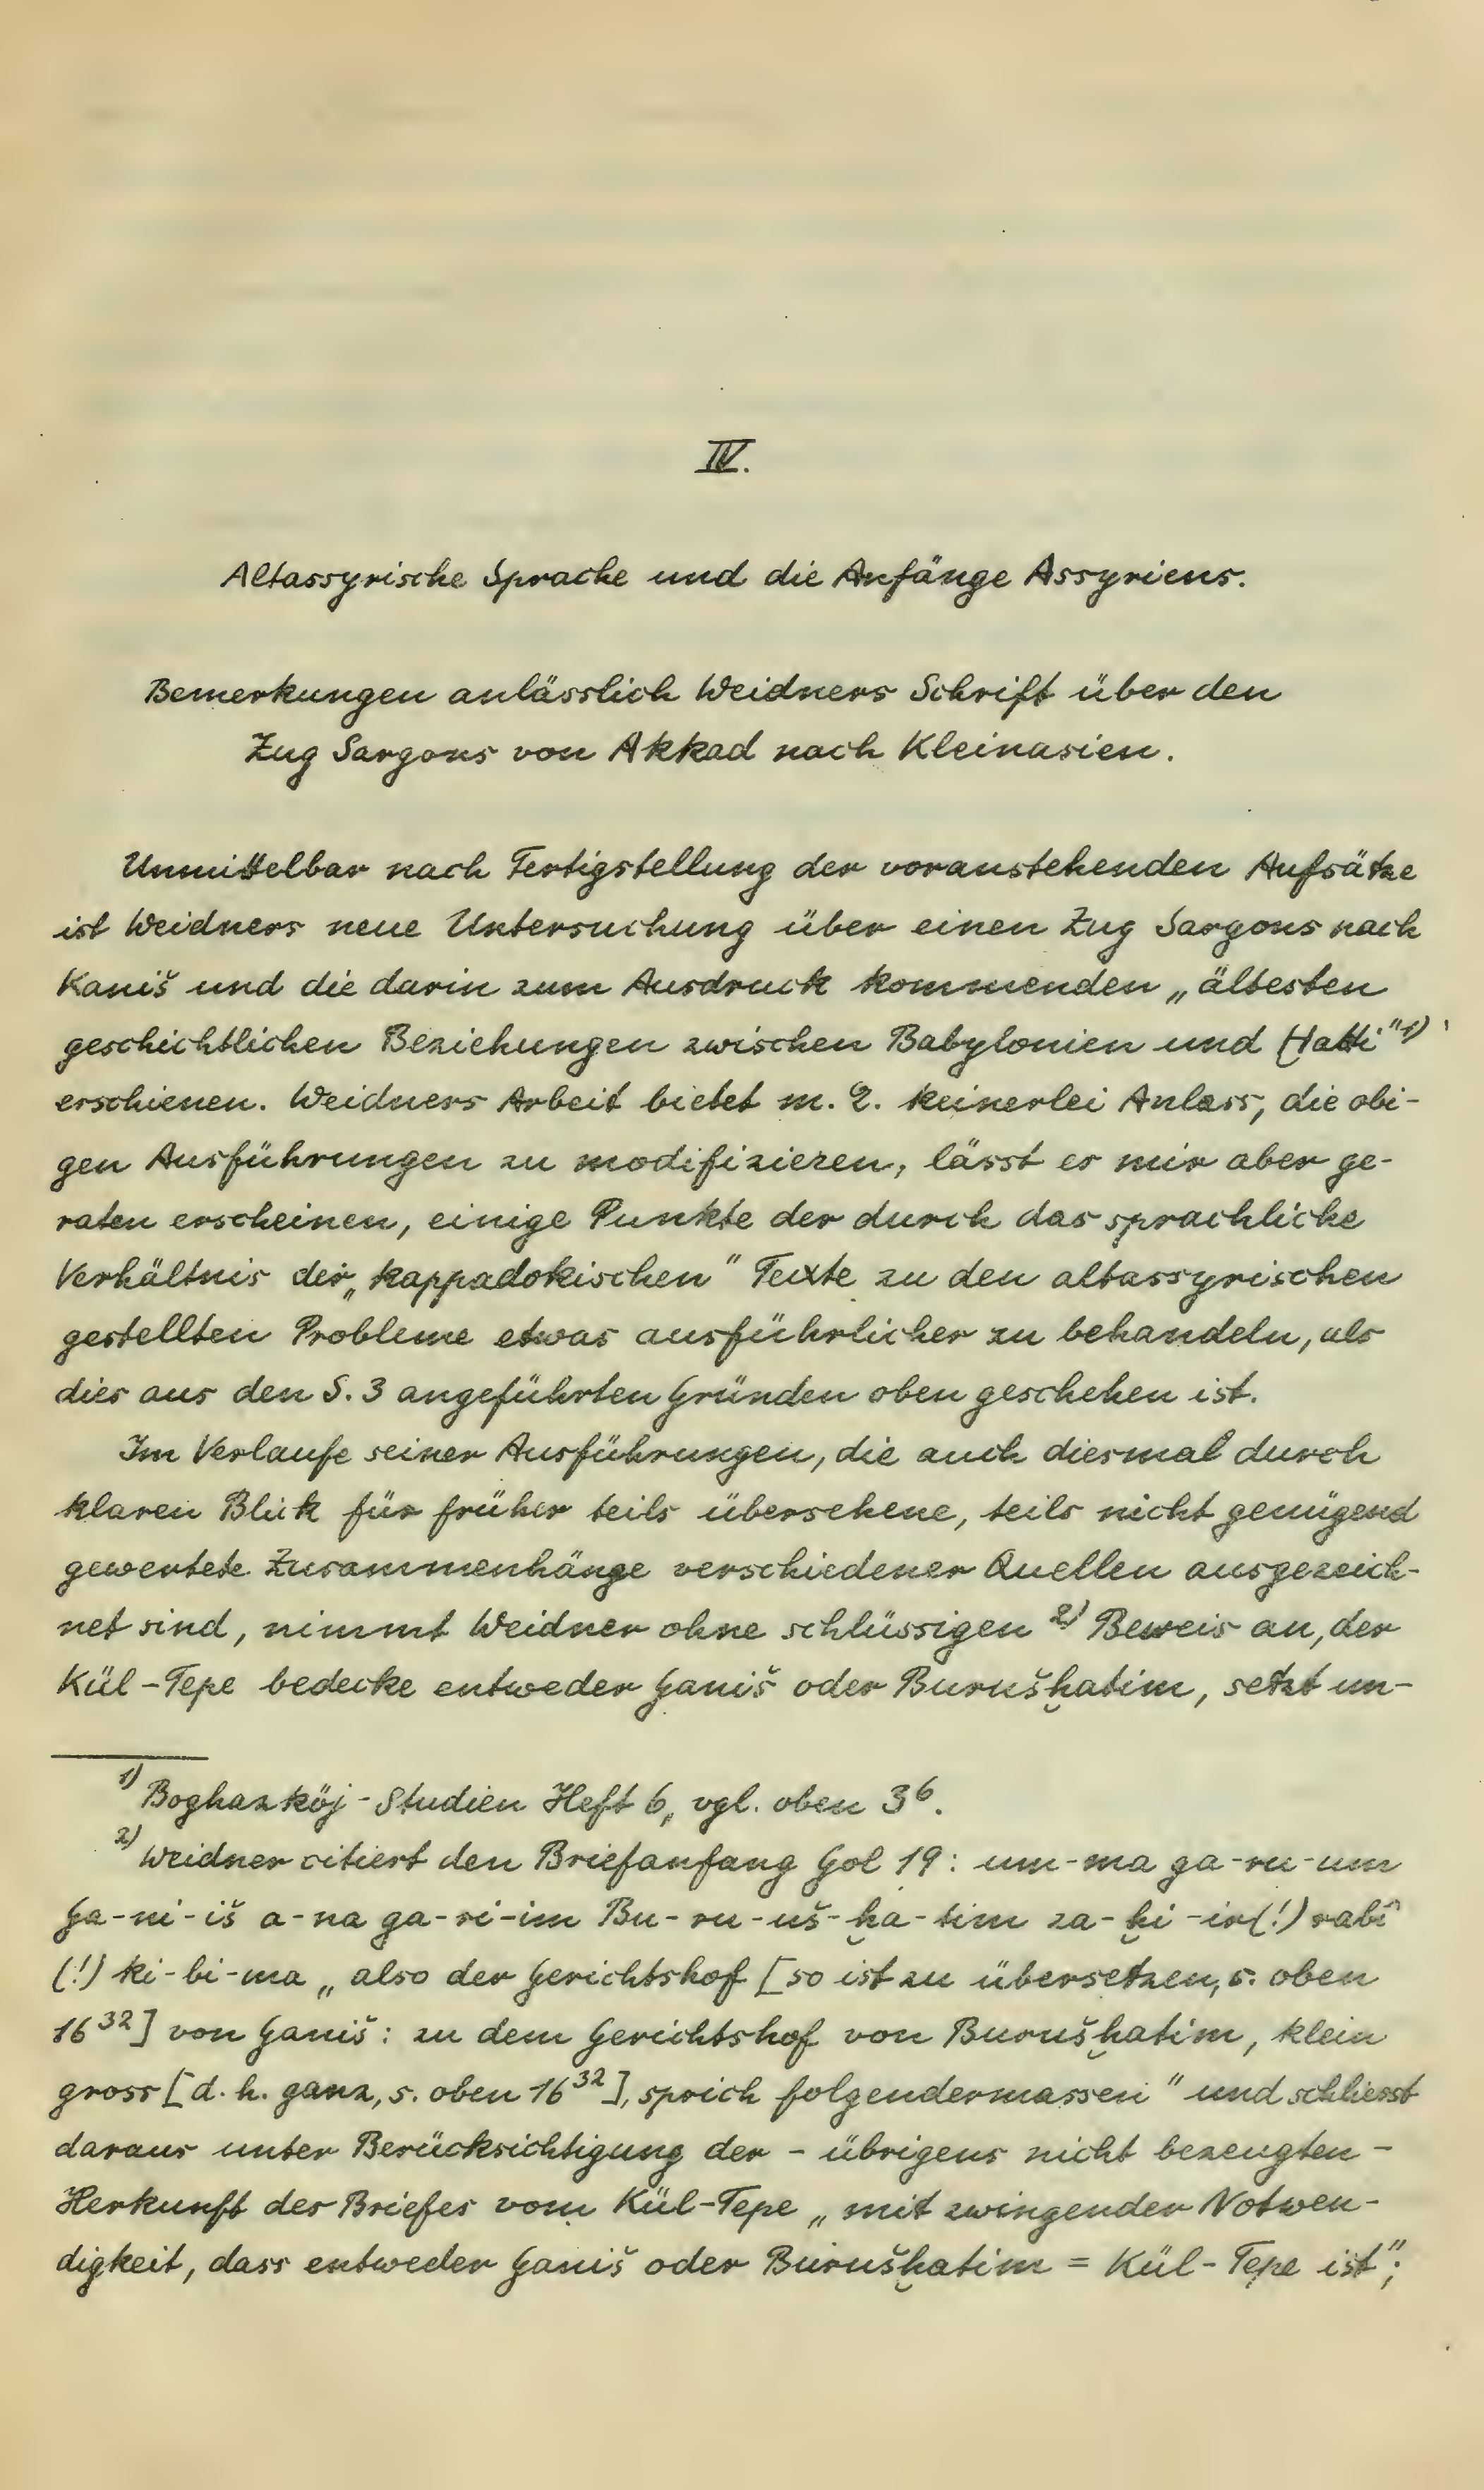 IV.
Altassyrische Sprache und die Anfänge Assyriens.
Bemerkungen anlässlich Weidners Schrift über den
Zug Sargons von Akkad nach Kleinasien.
Unmittelbar nach Fertigstellung der voranstehenden Aufsätze
ist Weidners neue Untersuchung über einen Zug Sargons nach
Kaniš und die darin zum Ausdruck kommenden „ältesten
geschichtlichen Beziehungen zwischen Babylonien und Ḫatti"¹⁾
erschienen. Weidners Arbeit bietet m. E. keinerlei Anlass, die obi-
gen Ausführungen zu modifizieren, lässt es mir aber ge-
raten erscheinen, einige Punkte der durch das sprachliche
Verhältnis der „kappadokischen" Texte zu den altassyrischen
gestellten Probleme etwas ausführlicher zu behandeln, als
dies aus den S. 3 angeführten Gründen oben geschehen ist.
Im Verlaufe seiner Ausführungen, die auch diesmal durch
klaren Blick für früher teils übersehene, teils nicht genügend
gewertete Zusammenhänge verschiedener Quellen ausgezeich-
net sind, nimmt Weidner ohne schlüssigen ²⁾ Beweis an, der
Kül-Tepe bedecke entweder Ganiš oder Burušḫatim, setzt un-
¹⁾ Boghazköj-Studien Heft 6, vgl. oben 3⁶.
²⁾ Weidner citiert den Briefanfang Gol 19: um-ma ga-ru-um
Ga-ni-iš a-na ga-ri-im Bu-ru-uš-ḫa-tim za-ḫi-ir(!) rabî
(!) ki-bi-ma „also der Gerichtshof [so ist zu übersetzen, s. oben
16³²] von Ganiš: zu dem Gerichtshof von Burušḫatim, klein
gross [d. h. ganz, s. oben 16³²], sprich folgendermassen" und schliesst
daraus unter Berücksichtigung der – übrigens nicht bezeugten –
Herkunft des Briefes vom Kül-Tepe „mit zwingender Notwen-
digkeit, dass entweder Ganiš oder Burušḫatim = Kül-Tepe ist";